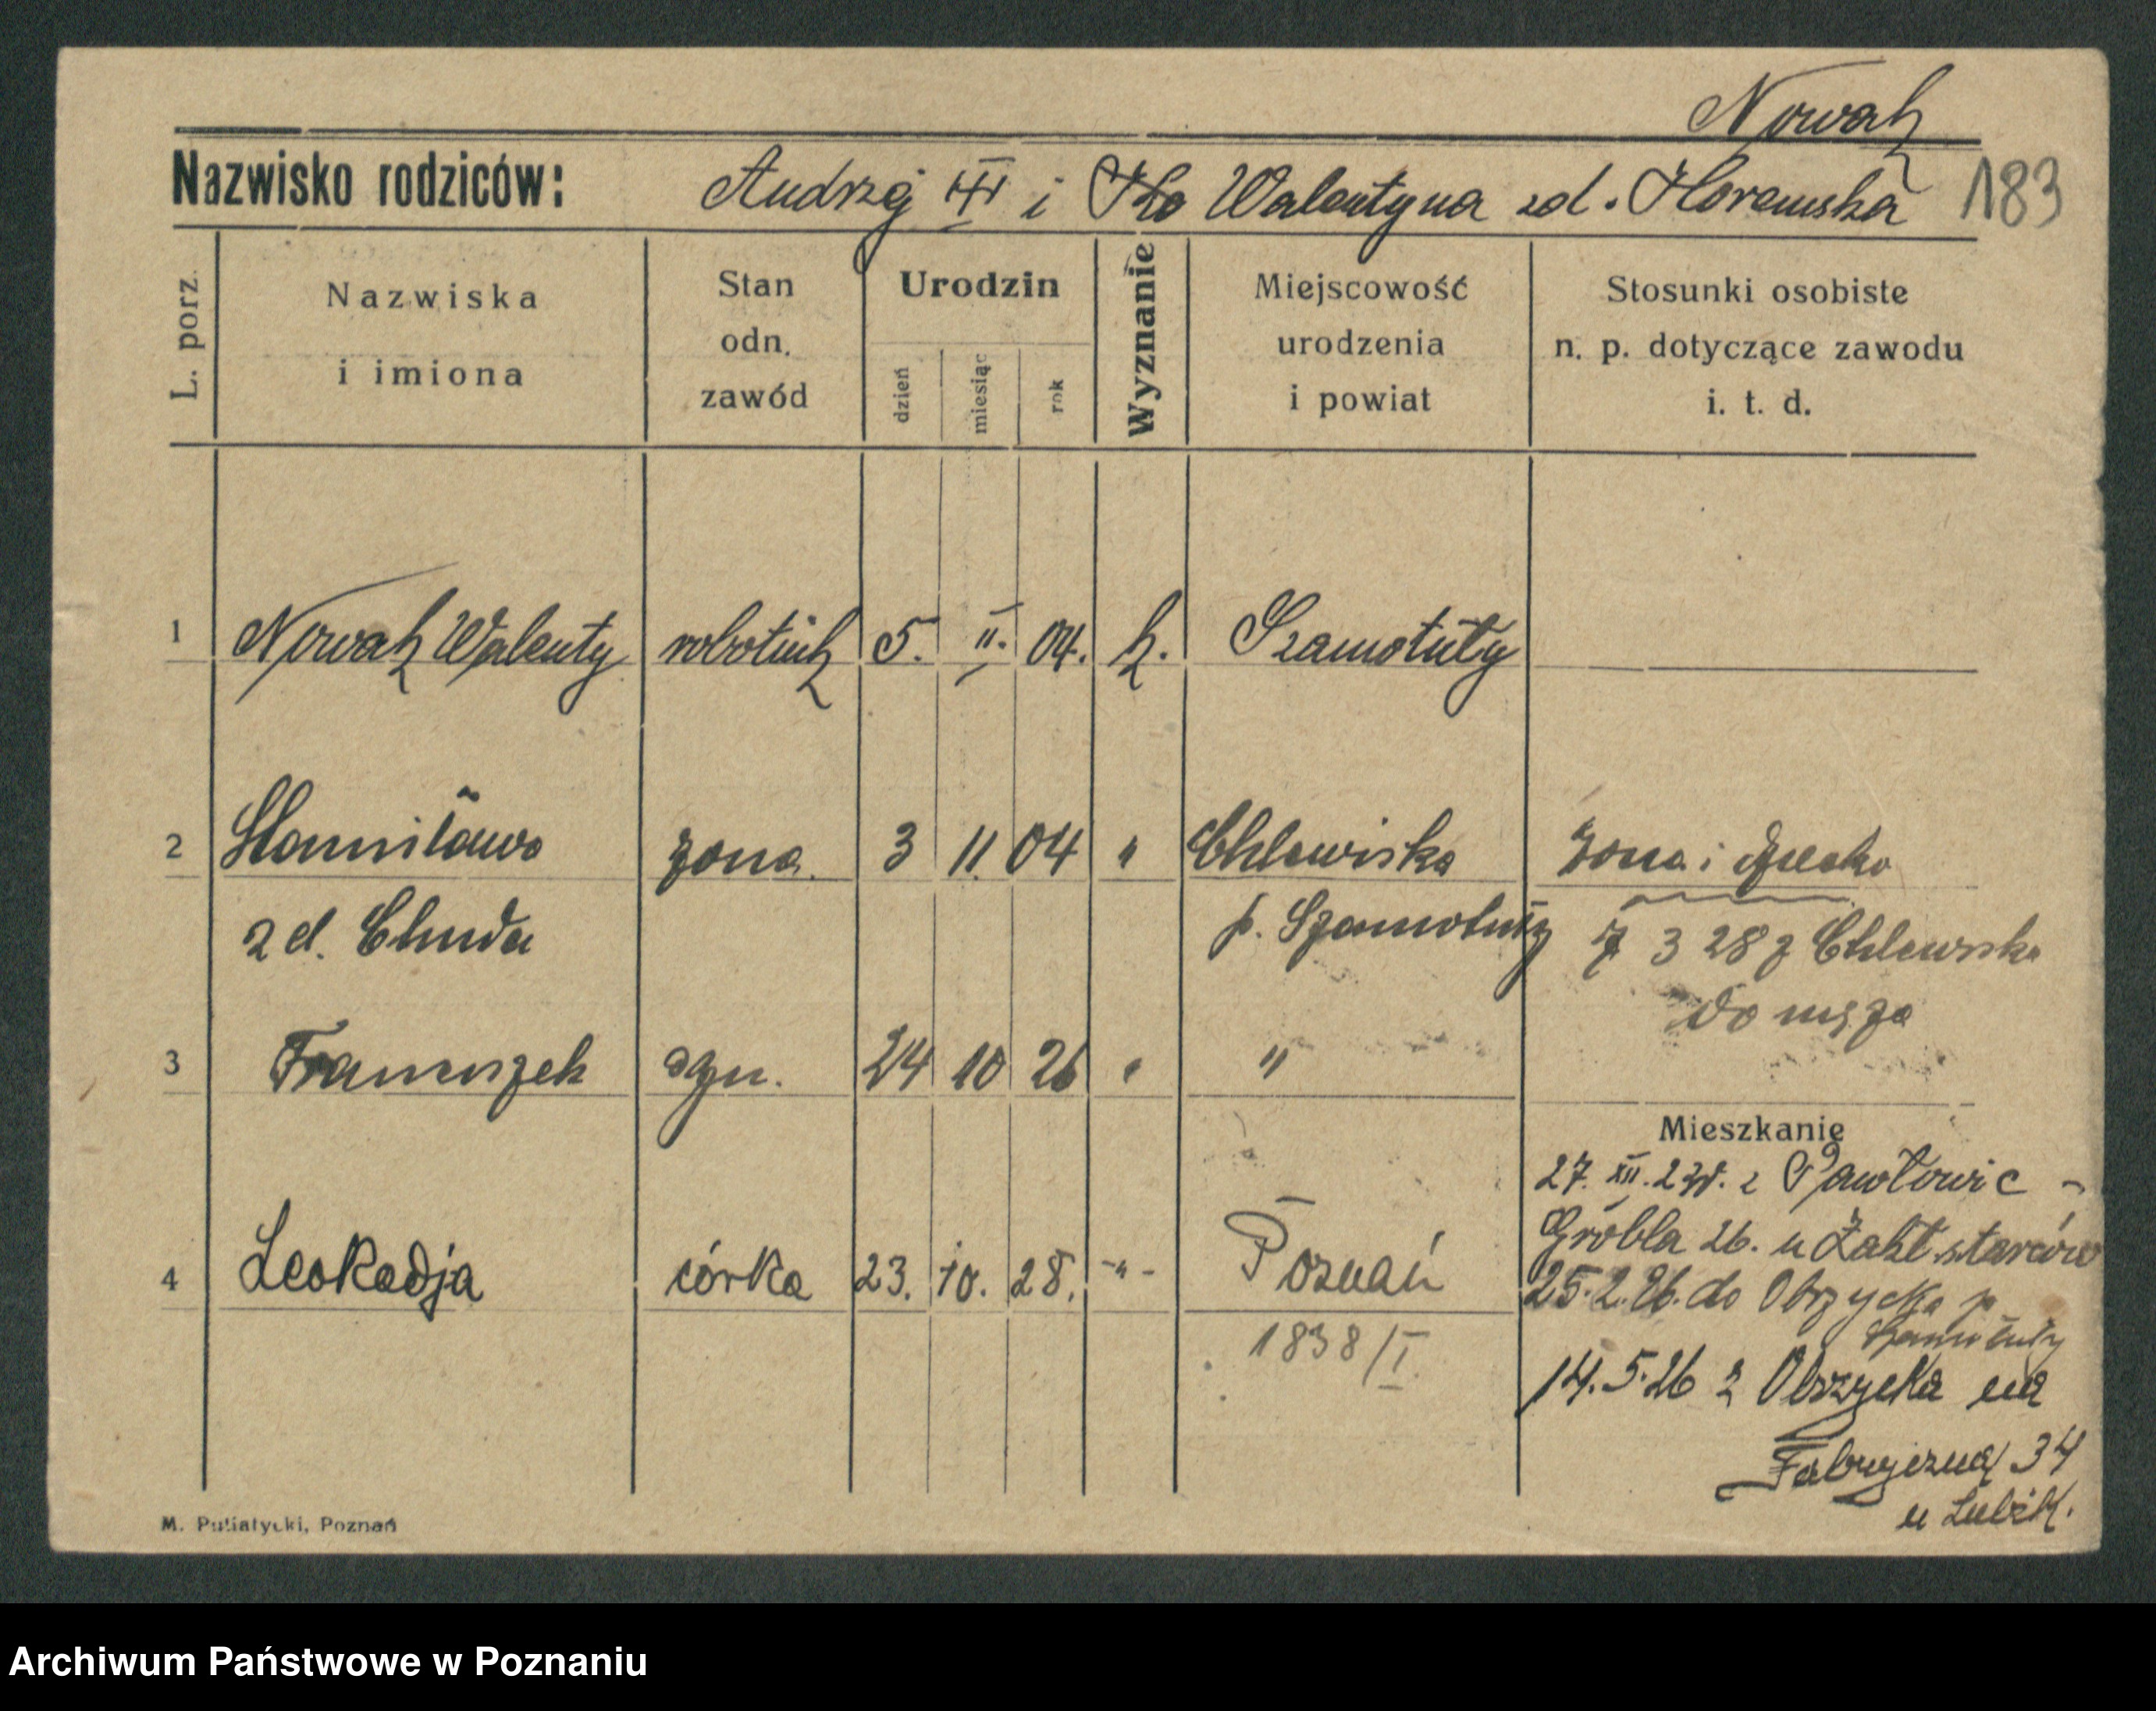 Nowak
Nazwisko rodziców: Andrzej i Walentyna zd. 183
L. porz. Nazwiska i imiona Stan odn. zawód Urodzin dzień miesiąc rok Wyznanie Miejscowość urodzenia i powiat Stosunki osobiste n. p. dotyczące zawodu i. t. d.
1 Nowak Walenty robotnik 5. II. 04. k. Szamotuły
2 Stanisława żona. 3 11. 04 " Chlewiska żona i dziecko
zd. Chuda p. Szamotuły 7 3 28 z Chlewiska
do męża
3 Franciszek syn. 24 10 26 " "
Mieszkanie
27. XII. z Pawłowic -
Grobla 26. u Zakł. starców
4 Leokadja córka 23. 10. 28. -"- Poznań
25.2.26. do Obrzycka p
Szamotuły
1838/I.
14.5.26 z Obrzycka na
Fabryczną 34
u
M. Putiatycki, Poznań
Archiwum Państwowe w Poznaniu